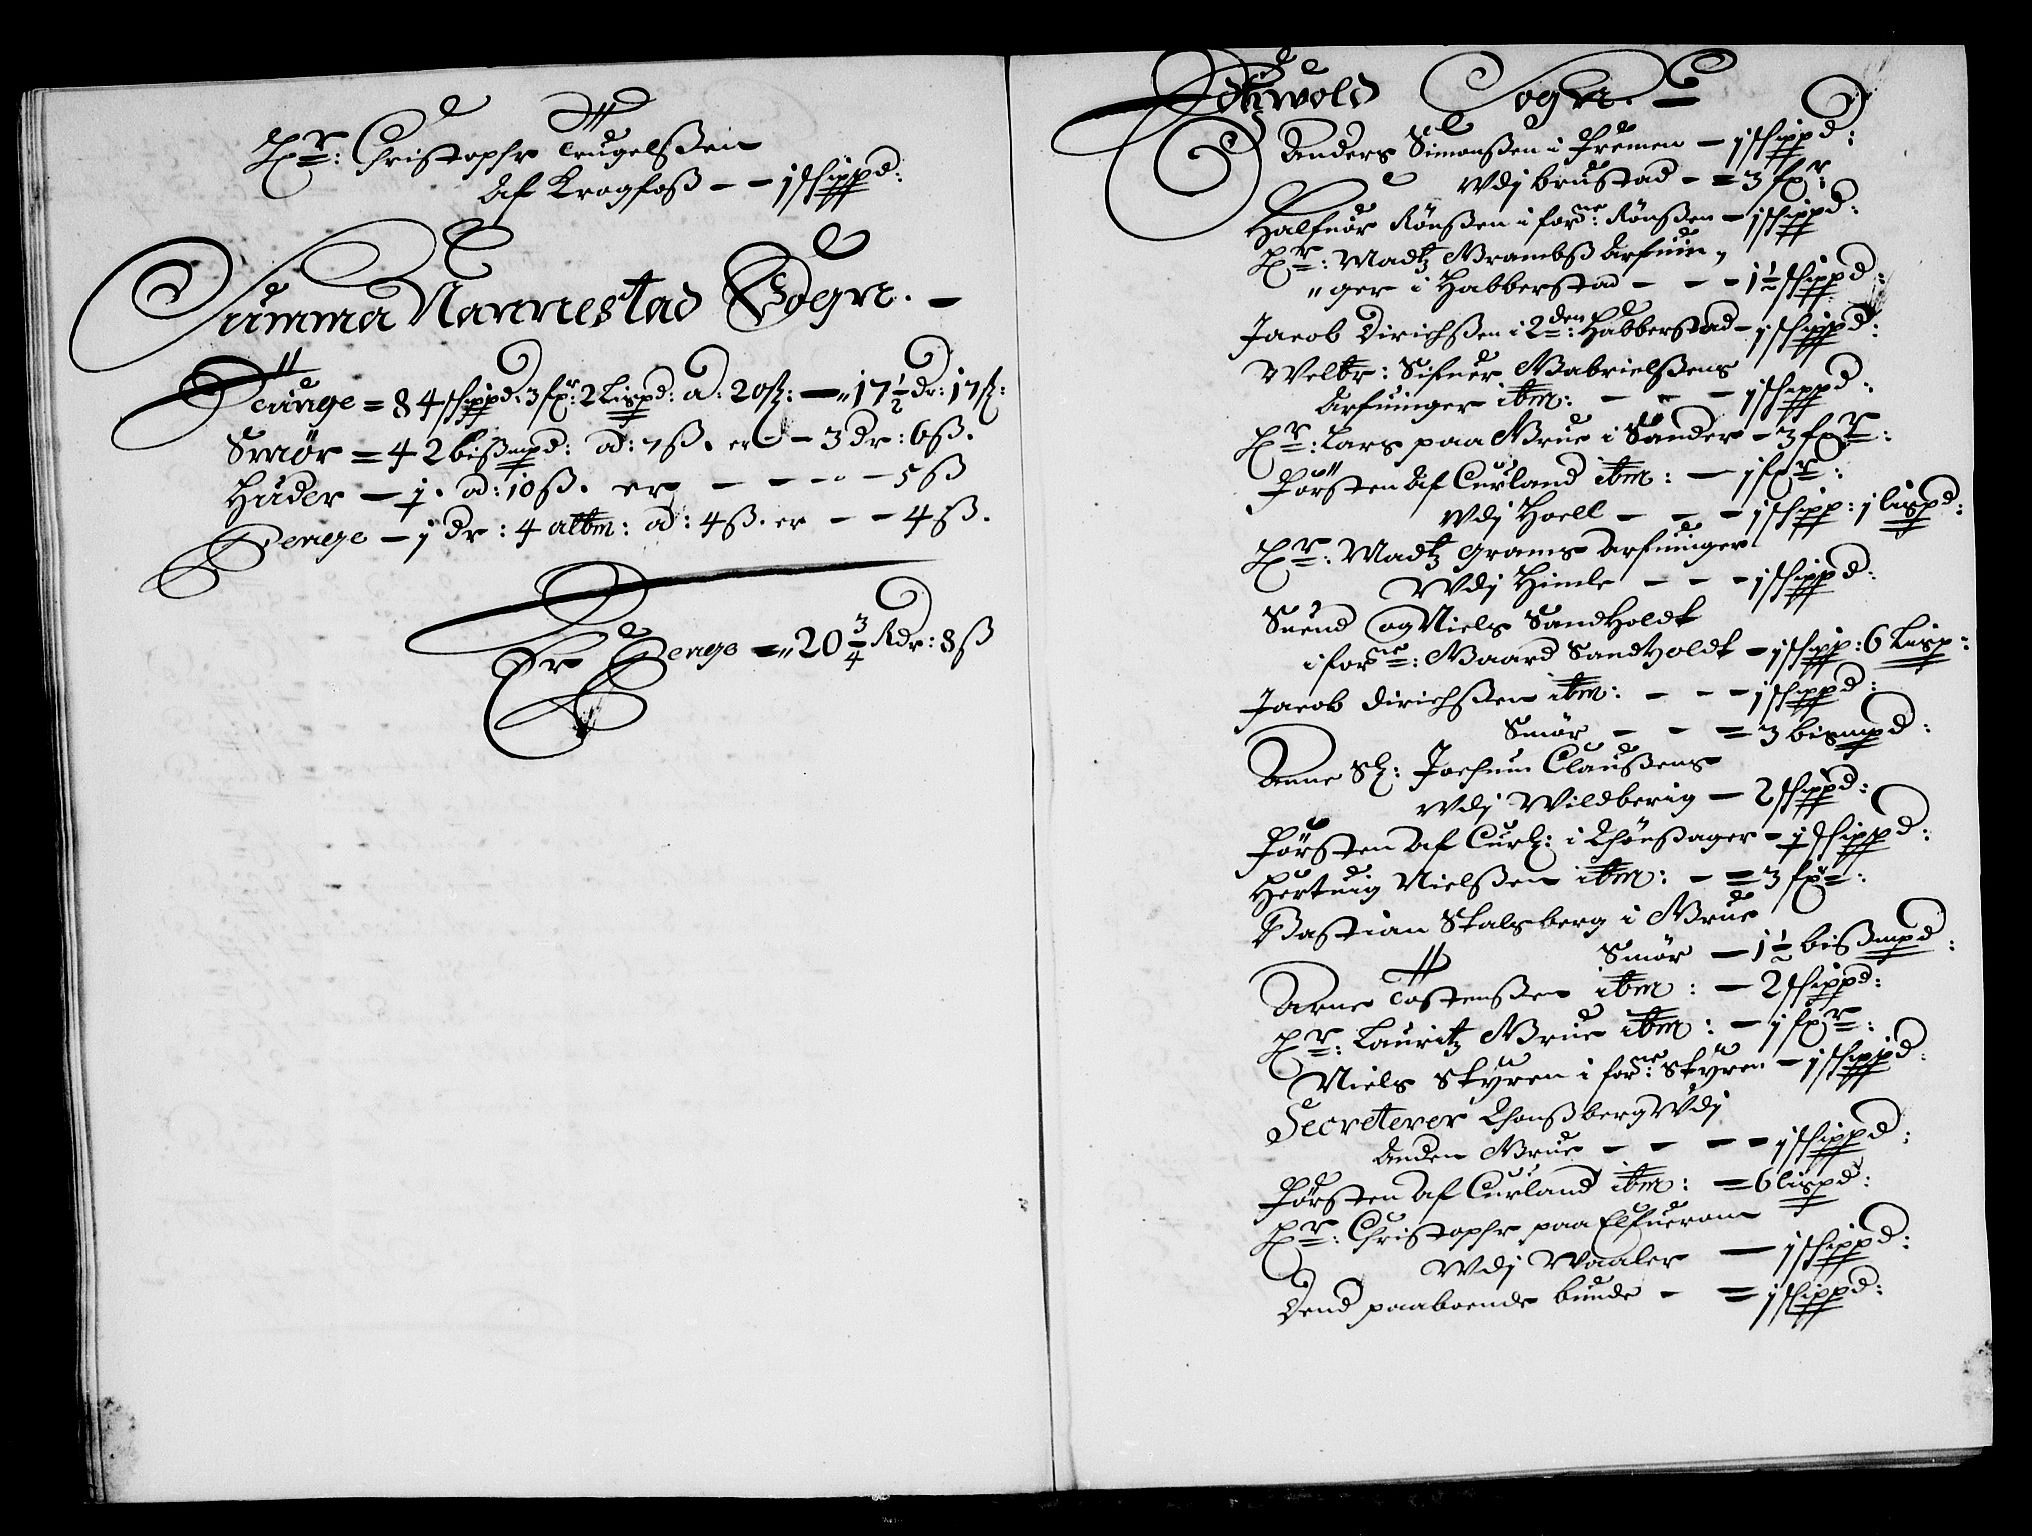 Hr: Christopher Trugelßen
Af Krogfoß - - 1 schippd:
Summa Nannestad Sogn. -
Tunge = 84 schippd: 3 fxr: 2 Lispd: a: 20 sz: - 17 1/2 dr: 17 sz:
Smør = 42 bißmpd: ad: 7 ß. er - - 3 dr: 6 ß.
Huder - 1. ad: 10 ß. er - - - - 5 ß
Penge - 1 dr: 4 altm: ad: 4 ß. er - - 4 ß.
Er Penge = 20 3/4 Rdr: 8 ß
Edtzwold Sogn. -
Anders Simonßen i Premen - 1 schippd:
Wdj brustad - = 3 fxr:
Halfuor Rønßen i forne: Rønßen - 1 schippd:
Hr: Madtz Grambß Arfuin,
"ger i Habberstad - - - 1 1/2 schippd:
Jacob Dirichßen i 2den: Habberstad - 1 schippd:
Welbr: Sifuer Gabrielßens
Arfuinger ibm: - - - 1 schippd:
Hr: Lars paa Grue i Sander - 3 fxr:
Førsten Af Curland ibm: - 1 fxr:
Wdj Hoell - - - 1 schipp: 1 lispd:
Hr: Madtz grams Arfuinger
Wdj Himle - - - 1 schippd:
Suend og Niels Sandholdt
i forne: Gaard Sandholdt - 1 schipp: 6 Lisp:
Jacob Dirichßen ibm: - - - 1 schippd:
Smør - - = 3 bismpd:
Anne Sl: Jochum Claußens
Wdj Wildberig - 2 schippd:
Førsten Af Curl: i Thønßager - 1 schippd:
Hertuig Nielßen ibm: - = 3 fxr:
Bastian Stalsberg i Grue
Smør - 1 1/2 bißmpd:
Arne Tostenßen ibm: - 2 schippd:
Hr: Lauritz Grue ibm: - 1 fxr:
Niels Styren i forne: Styren - 1 schippd:
Secreterer Thonßberg Wdj
Anden Grue - - - - 1 schippd:
Førsten Af Curland ibm: = 6 lispd:
Hr: Christopher paa Elfueram
Wdj Waaler - 1 schippd:
Dend paaboende bunde - = 1 schippd: